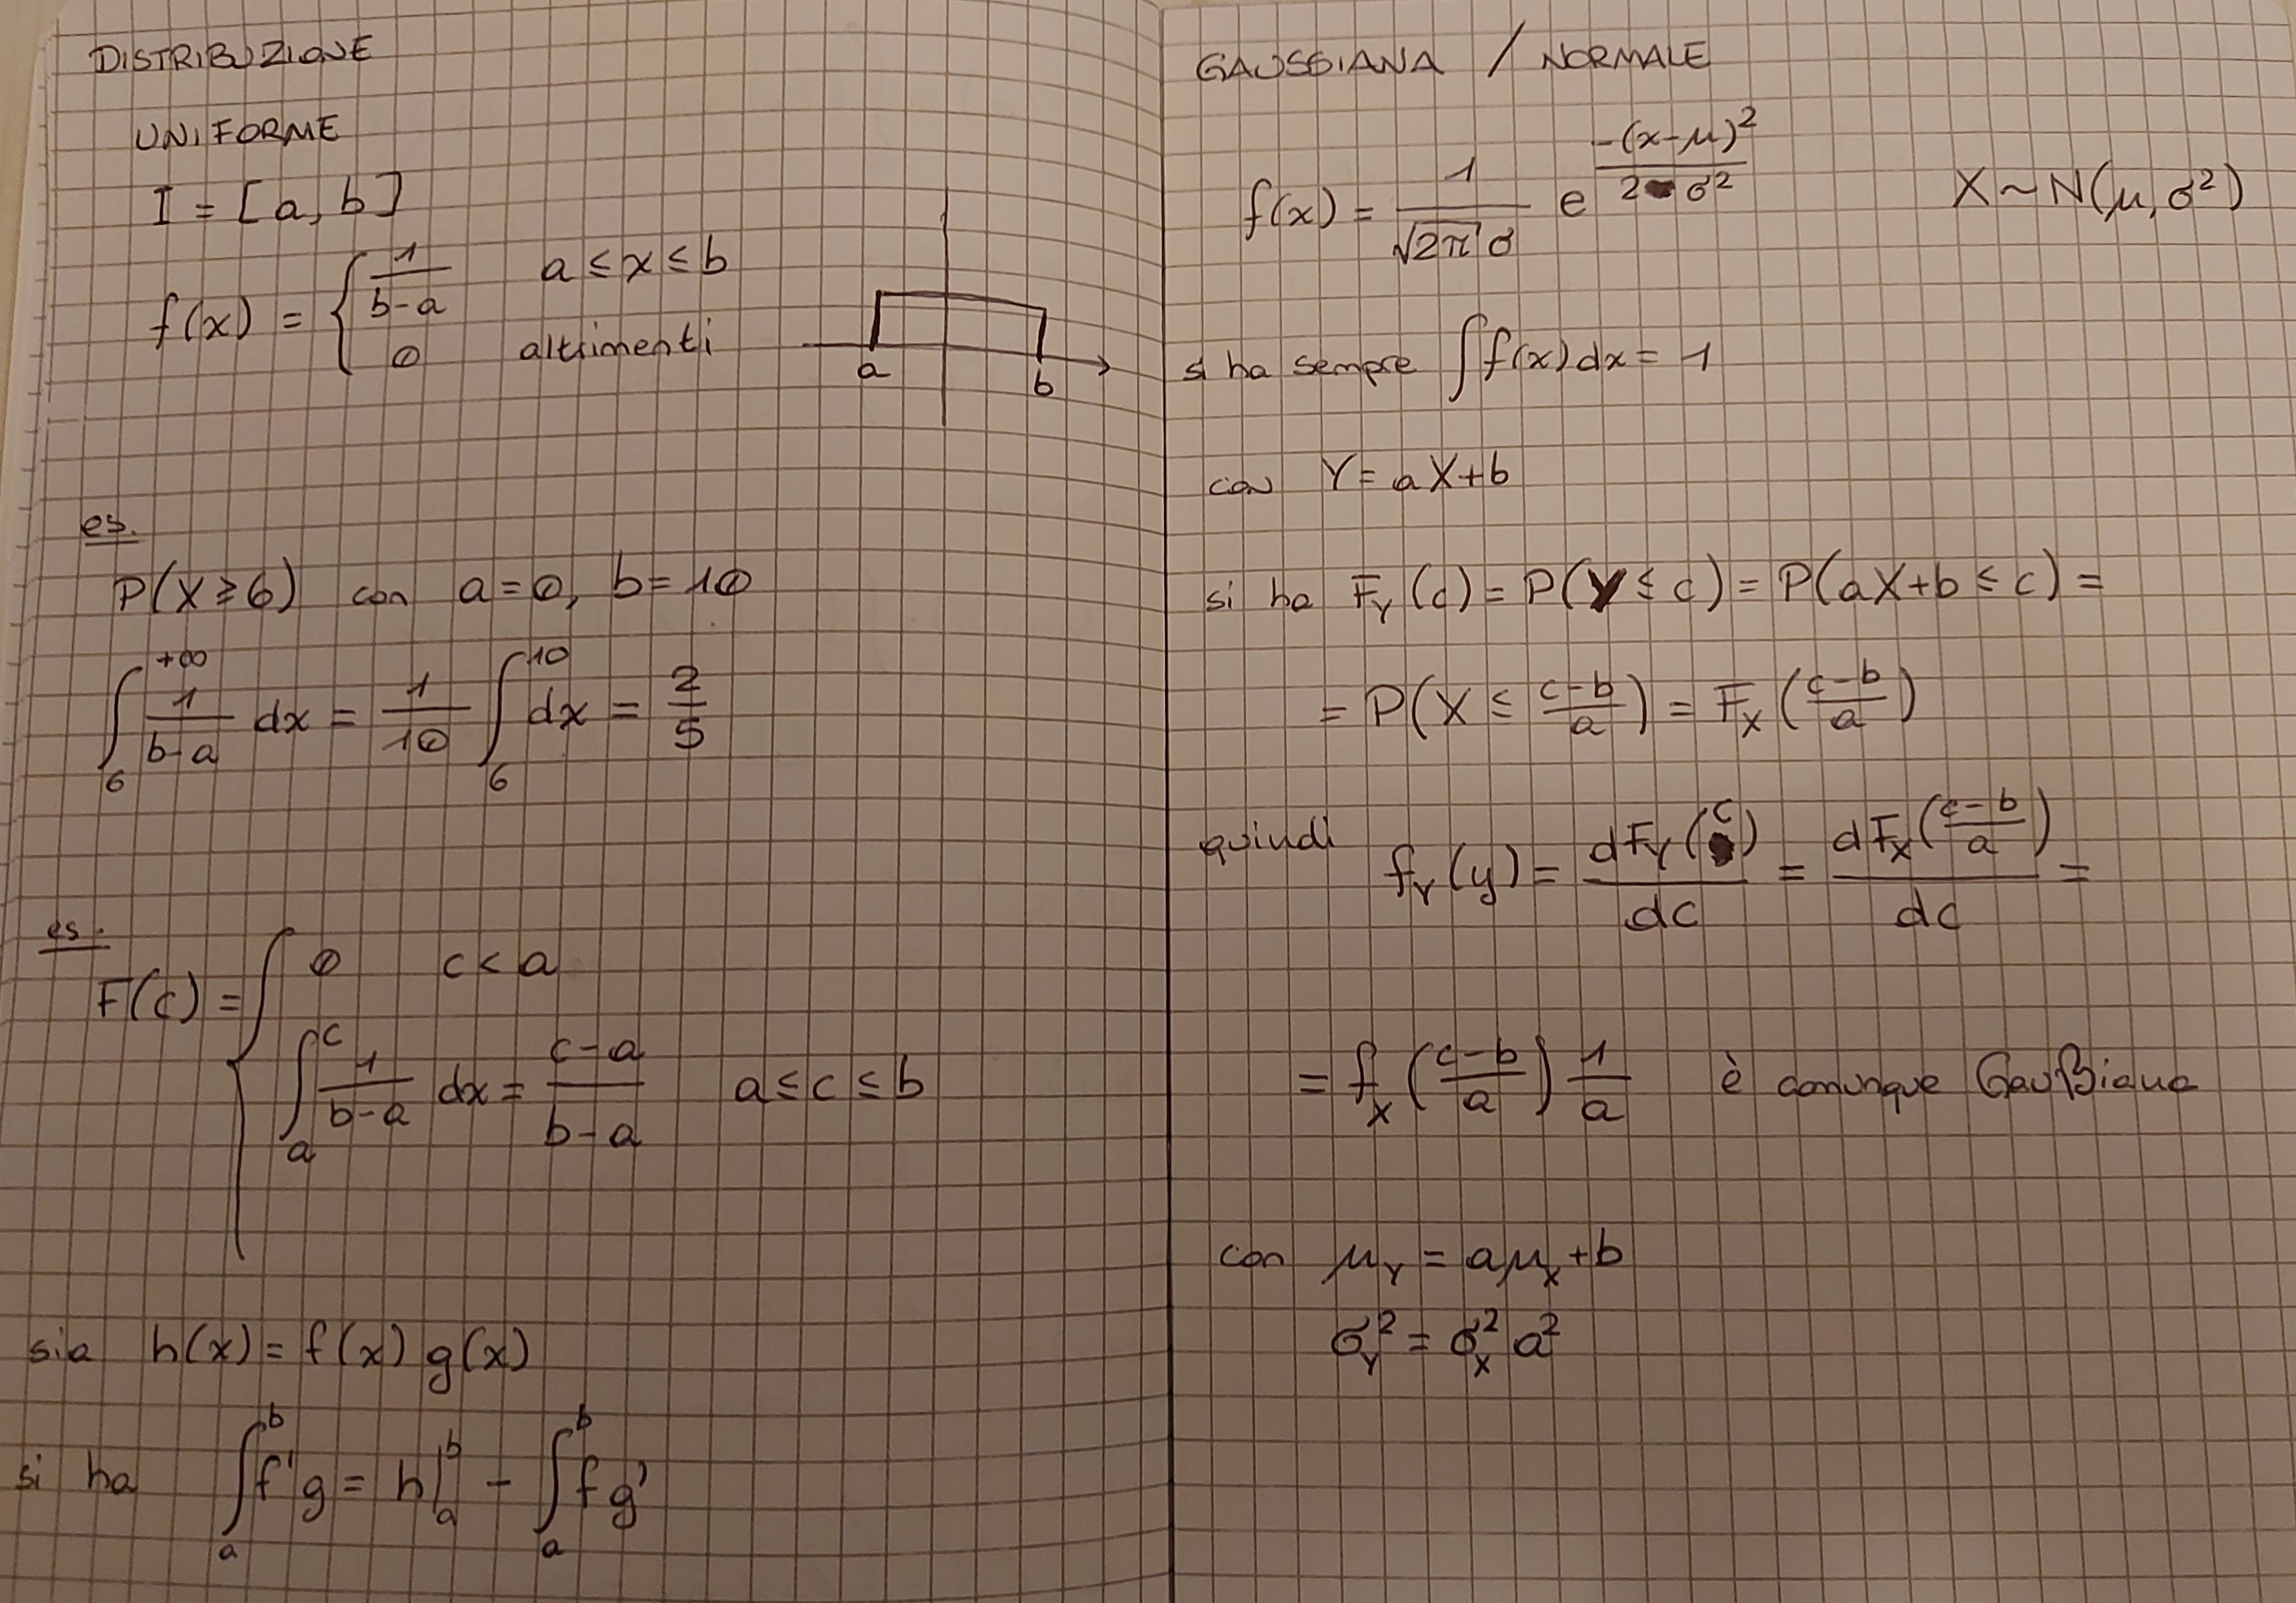 DISTRIBUZIONE
UNIFORME
I = [a, b]
f(x) = { 1/(b-a)   a ≤ x ≤ b
0   altrimenti
a   b
es.
P(X ≥ 6)   con   a = 0, b = 10
∫_6^{+∞} 1/(b-a) dx = 1/10 ∫_6^{10} dx = 2/5
es.
F(c) = { 0   c < a
∫_a^c 1/(b-a) dx = (c-a)/(b-a)   a ≤ c ≤ b
sia h(x) = f(x) g(x)
si ha   ∫_a^b f'g = h|_a^b - ∫_a^b fg'
GAUSSIANA / NORMALE
f(x) = 1/(√2π σ) e^{-(x-μ)²/(2σ²)}   X ~ N(μ, σ²)
si ha sempre ∫f(x)dx = 1
con Y = aX+b
si ha F_Y(c) = P(Y ≤ c) = P(aX+b ≤ c) =
= P(X ≤ (c-b)/a) = F_X((c-b)/a)
quindi f_Y(y) = dF_Y(c)/dc = dF_X((c-b)/a)/dc =
= f_X((c-b)/a) 1/a   è comunque Gaußiana
con μ_Y = aμ_X + b
σ_Y² = σ_X² a²